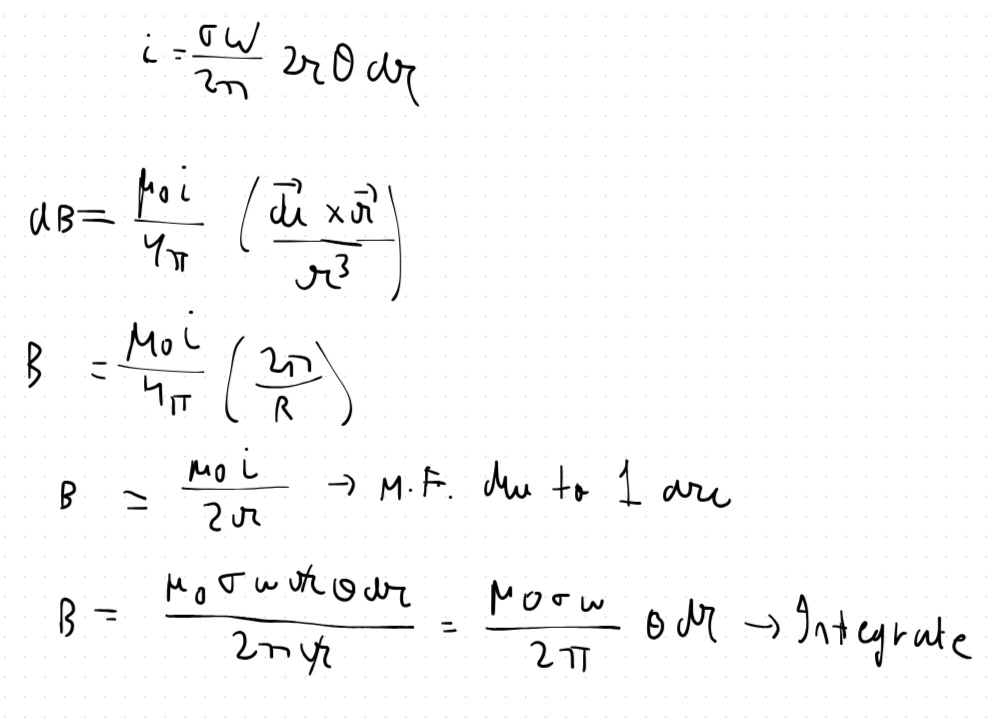 i = σω/2π 2rθ dr
dB = μ₀i/4π (d⃗l × r⃗ / r³)
B = μ₀i/4π (2π/R)
B = μ₀i/2r → M.F. due to 1 arc
B = μ₀σωrθdr/2πr = μ₀σω/2π θ dr → Integrate